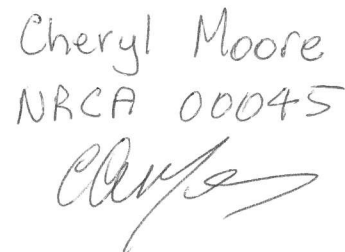 Cheryl Moore
NRCA 00045